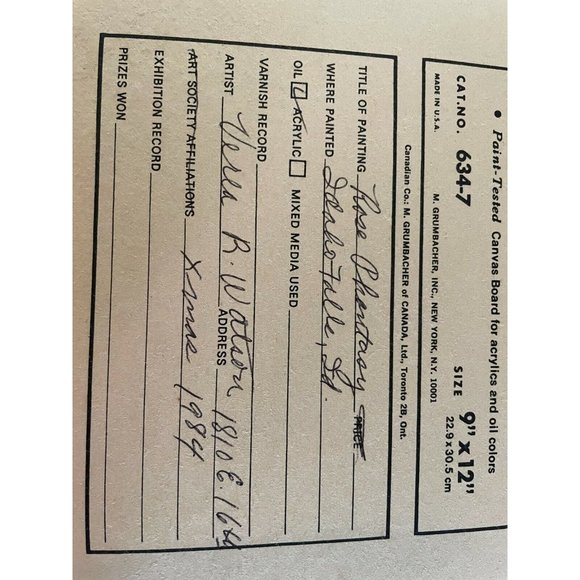 • Paint-Tested Canvas Board for acrylics and oil colors
CAT.NO. 634-7 SIZE 9" x 12"
22.9 x 30.5 cm
MADE IN U.S.A. M. GRUMBACHER, INC., NEW YORK, N.Y. 10001
Canadian Co.: M. GRUMBACHER of CANADA, Ltd., Toronto 2B, Ont.
TITLE OF PAINTING Rose Phantasy PRICE
WHERE PAINTED Idaho Falls, Id.
OIL ☑ ACRYLIC ☐ MIXED MEDIA USED
VARNISH RECORD
ARTIST Verla R. Watson ADDRESS 1810 E. 16th
ART SOCIETY AFFILIATIONS Xmas 1984
EXHIBITION RECORD
PRIZES WON